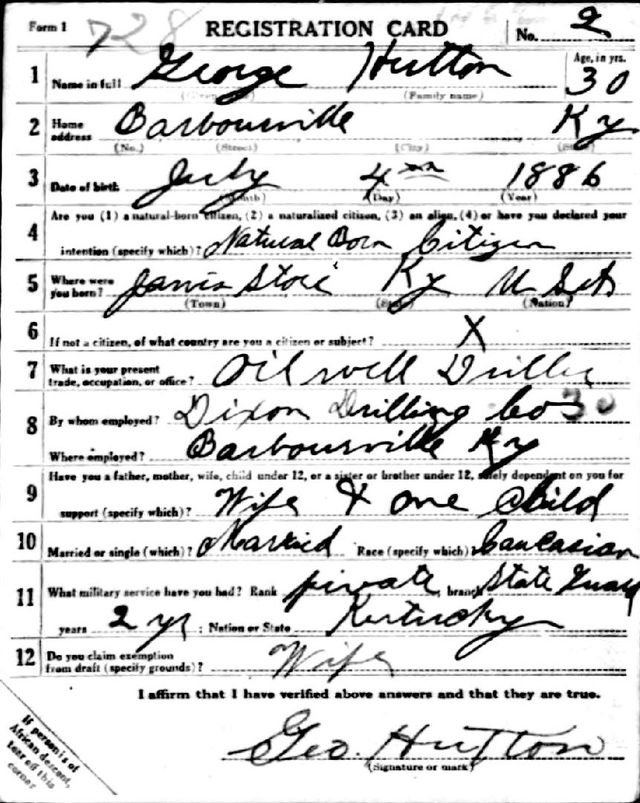 Form 1 728 REGISTRATION CARD No. 2
1 Name in full George Hutton Age, in yrs. 30
(Given name) (Family name)
2 Home address Barbourville Ky
(No.) (Street) (City) (State)
3 Date of birth July 4 1886
(Month) (Day) (Year)
Are you (1) a natural-born citizen, (2) a naturalized citizen, (3) an alien, (4) or have you declared your
4 intention (specify which)? Natural Born Citizen
5 Where were you born? Ky
(Town) (State) (Nation)
6 If not a citizen, of what country are you a citizen or subject? X
7 What is your present trade, occupation, or office? Oil well Driller
8 By whom employed? Dixon Drilling Co 30
Where employed? Barbourville Ky
Have you a father, mother, wife, child under 12, or a sister or brother under 12, solely dependent on you for
9 support (specify which)? Wife & one Child
10 Married or single (which)? Married Race (specify which)? Caucasian
11 What military service have you had? Rank private branch State Guard
years 2 yr ; Nation or State Kentucky
12 Do you claim exemption from draft (specify grounds)? Wife
I affirm that I have verified above answers and that they are true.
Geo. Hutton
(Signature or mark)
If person is of
African descent,
tear off this
corner